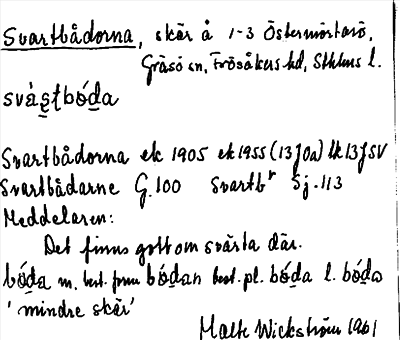 Svartbådorna, skär å 1-3 Östermörtarö,
Gräsö sn, Frösåkers hd, Sthlms l.
sváʂʈbóda
Svartbådorna ek 1905 ek 1955 (13J0a) lk 13J SV
Svartbådarne G.100 Svartbr Sj.113
Meddelaren:
Det finns gott om svärta där.
bóda m. best. form bódan best. pl. bóda l. bóda
'mindre skär'
Malte Wickström 1961